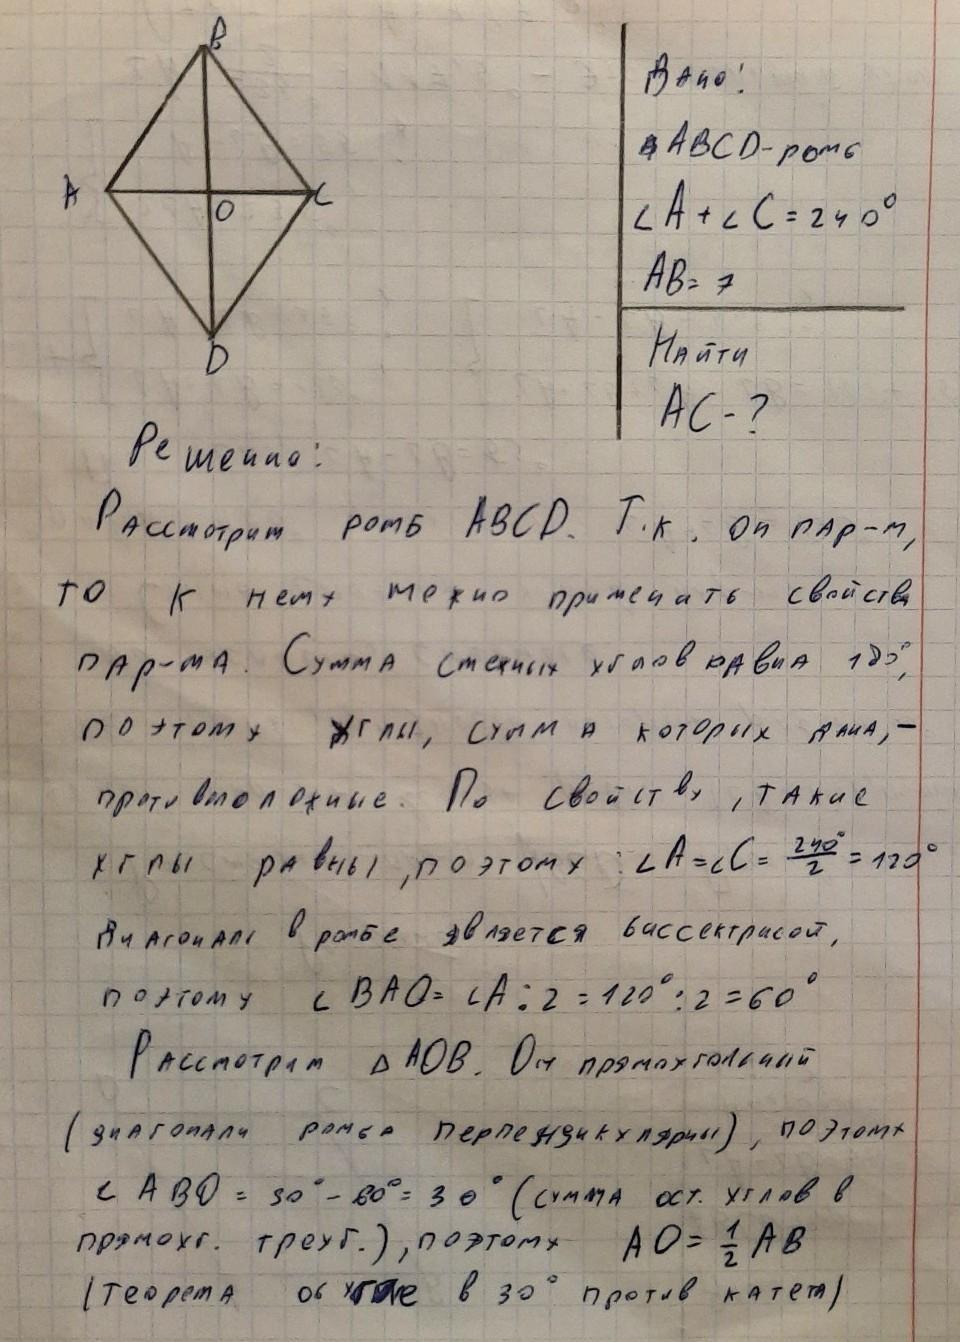 B
A
C
O
D
Дано:
ABCD-ромб
∠A+∠C=240°
AB=7
Найти
AC-?
Решение:
Рассмотрим ромб ABCD. Т.к. он пар-м,
то к нему можно применить свойства
пар-ма. Сумма смежных углов равна 180°,
поэтому углы, сумма которых дана,–
противоположные. По свойству, такие
углы равны, поэтому: ∠A=∠C= 240°/2 =120°
Диагональ в ромбе является биссектрисой,
поэтому ∠BAO= ∠A:2=120°:2=60°
Рассмотрим △AOB. Он прямоугольный
(диагонали ромба перпендикулярны), поэтому
∠ABO = 90°-60°=30° (сумма ост. углов в
прямоуг. треуг.), поэтому AO= 1/2 AB
(теорема об угле в 30° против катета)